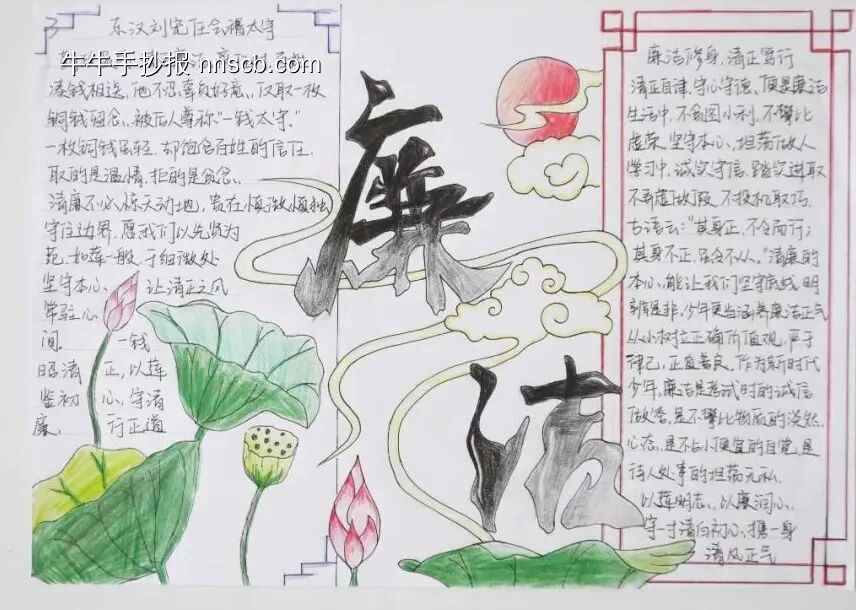 东汉刘宠任会稽太守
牛牛手抄报 nnscb.com
凑钱相送，他不忍辜负好意，仅取一枚
铜钱留念，被后人尊称"一钱太守"。
一枚铜钱虽轻，却饱含百姓的信任，
取的是温情，拒的是贪念。
清廉不必惊天动地，贵在慎微慎独
守住边界，愿我们以先贤为
范，如莲一般，于细微处
坚守本心，让清正之风
常驻心
间。一钱
昭清正，以莲
鉴初心，守清
廉，行正道
廉洁
廉洁修身，清正笃行
清正自律，守心守德，便是廉洁
生活中，不贪图小利，不攀比
虚荣，坚守本心，坦荡做人
学习中，诚实守信，踏实进取
不弄虚做假，不投机取巧，
古语云："其身正，不令而行；
其身不正，虽令不从。"清廉的
本心，能让我们坚守底线，明
辨是非，少年更当涵养廉洁正气
从小树立正确价值观，严于
律己，正直善良，作为新时代
少年，廉洁是考试时的诚信
做答，是不攀比物质的淡然
心态，是不占小便宜的自觉，是
待人处事的坦荡无私
以莲明志，以廉润心，
守一寸清白初心，携一身
清风正气